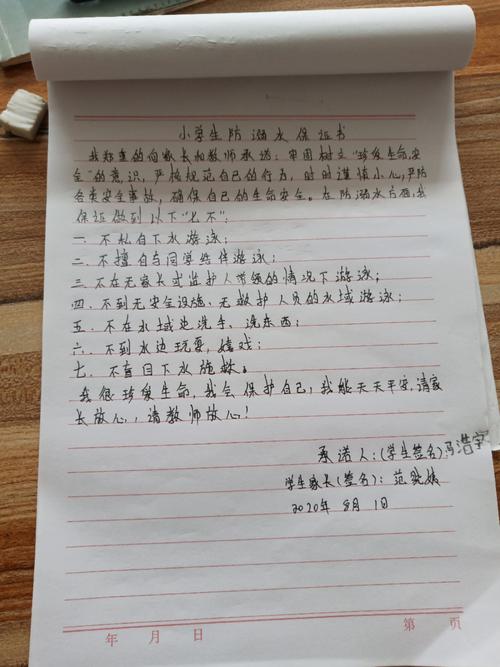 小学生防溺水保证书
我郑重的向家长和教师承诺：牢固树立“珍爱生命，安
全”的意识，严格规范自己的行为，时时谨慎小心，严防
各类安全事故，确保自己的生命安全。在防溺水方面，我
保证做到以下“七不”：
一、不私自下水游泳；
二、不擅自与同学结伴游泳；
三、不在无家长或监护人带领的情况下游泳；
四、不到无安全设施、无救护人员的水域游泳；
五、不在水域边洗手、洗东西；
六、不到水边玩耍，嬉戏；
七、不盲目下水施救。
我很珍爱生命，我会保护自己；我能天天平安，请家
长放心，请教师放心！
承诺人：(学生签名)：冯浩宇
学生家长(签名)：范
2020年8月1日
年 月 日 第 页